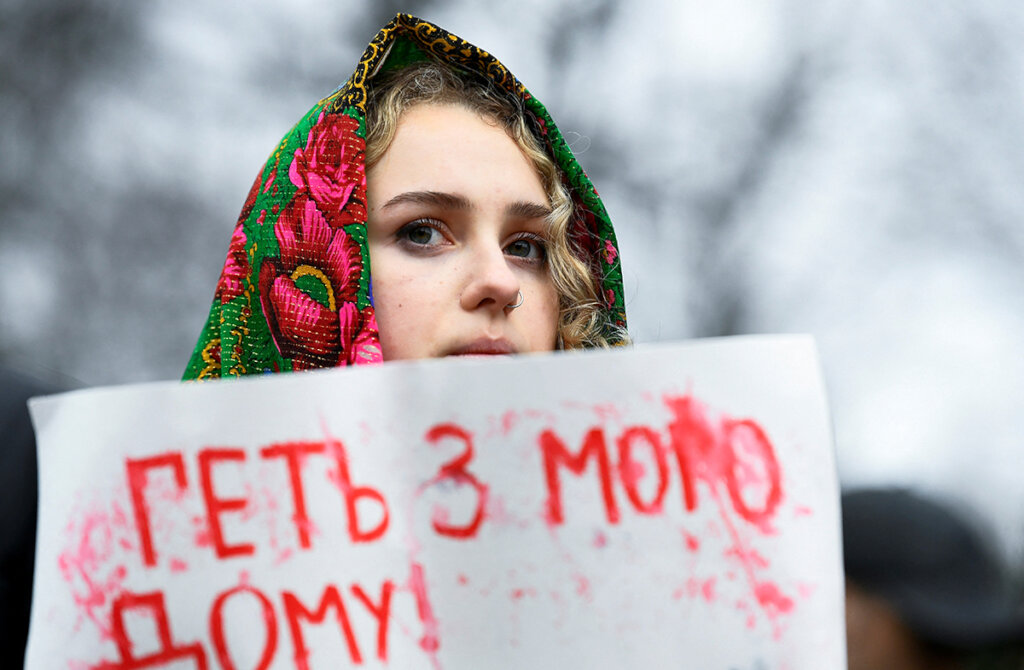 ГЕТЬ З МОГО
ДОМУ!